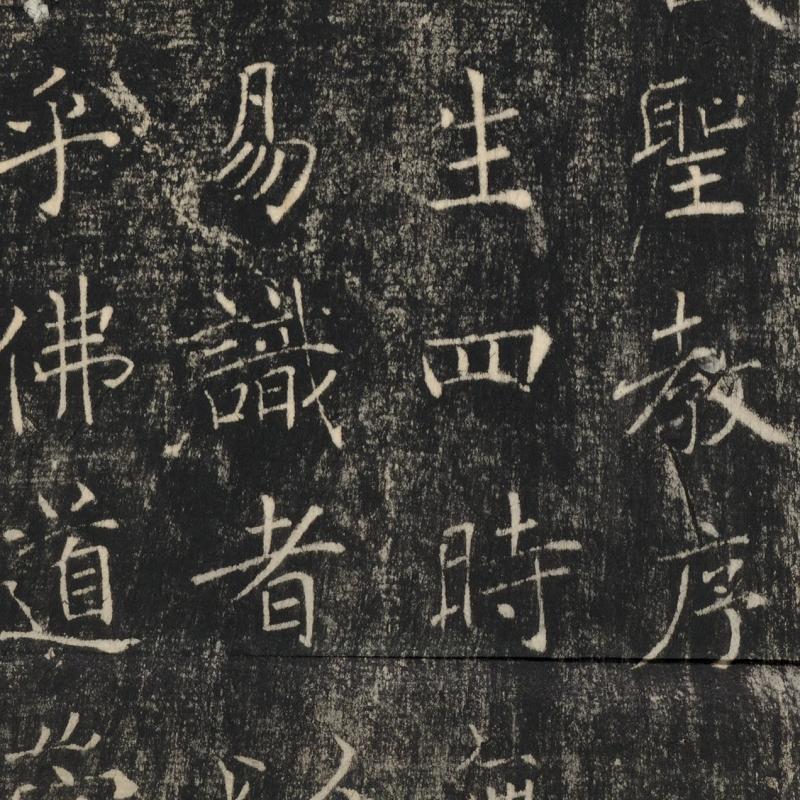 聖教序
生四時無
易識者以
乎佛道崇